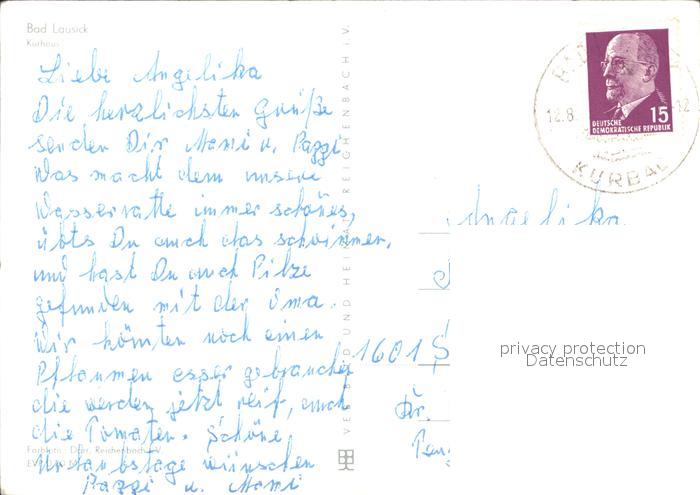 Bad Lausick
Kurhaus
Liebe Angelika
Die herzlichsten Grüße
senden Dir Mami u. Pazzi
Was macht denn unsere
Wasserratte immer schönes,
übts Du auch das schwimmen,
und hast Du auch Pilze
gefunden mit der Oma.
Wir könnten noch einen
Pflaumen esser gebrauchen
die werden jetzt reif, auch
die Tomaten. Schöne
Urlaubstage wünschen
Pazzi u. Mami
REICHENBACH I. V.
BILD UND HEIMAT
15
DEUTSCHE
DEMOKRATISCHE REPUBLIK
BAD
18.8
-12
KURBAD
Angelika
1601
Kr.
privacy protection
Datenschutz